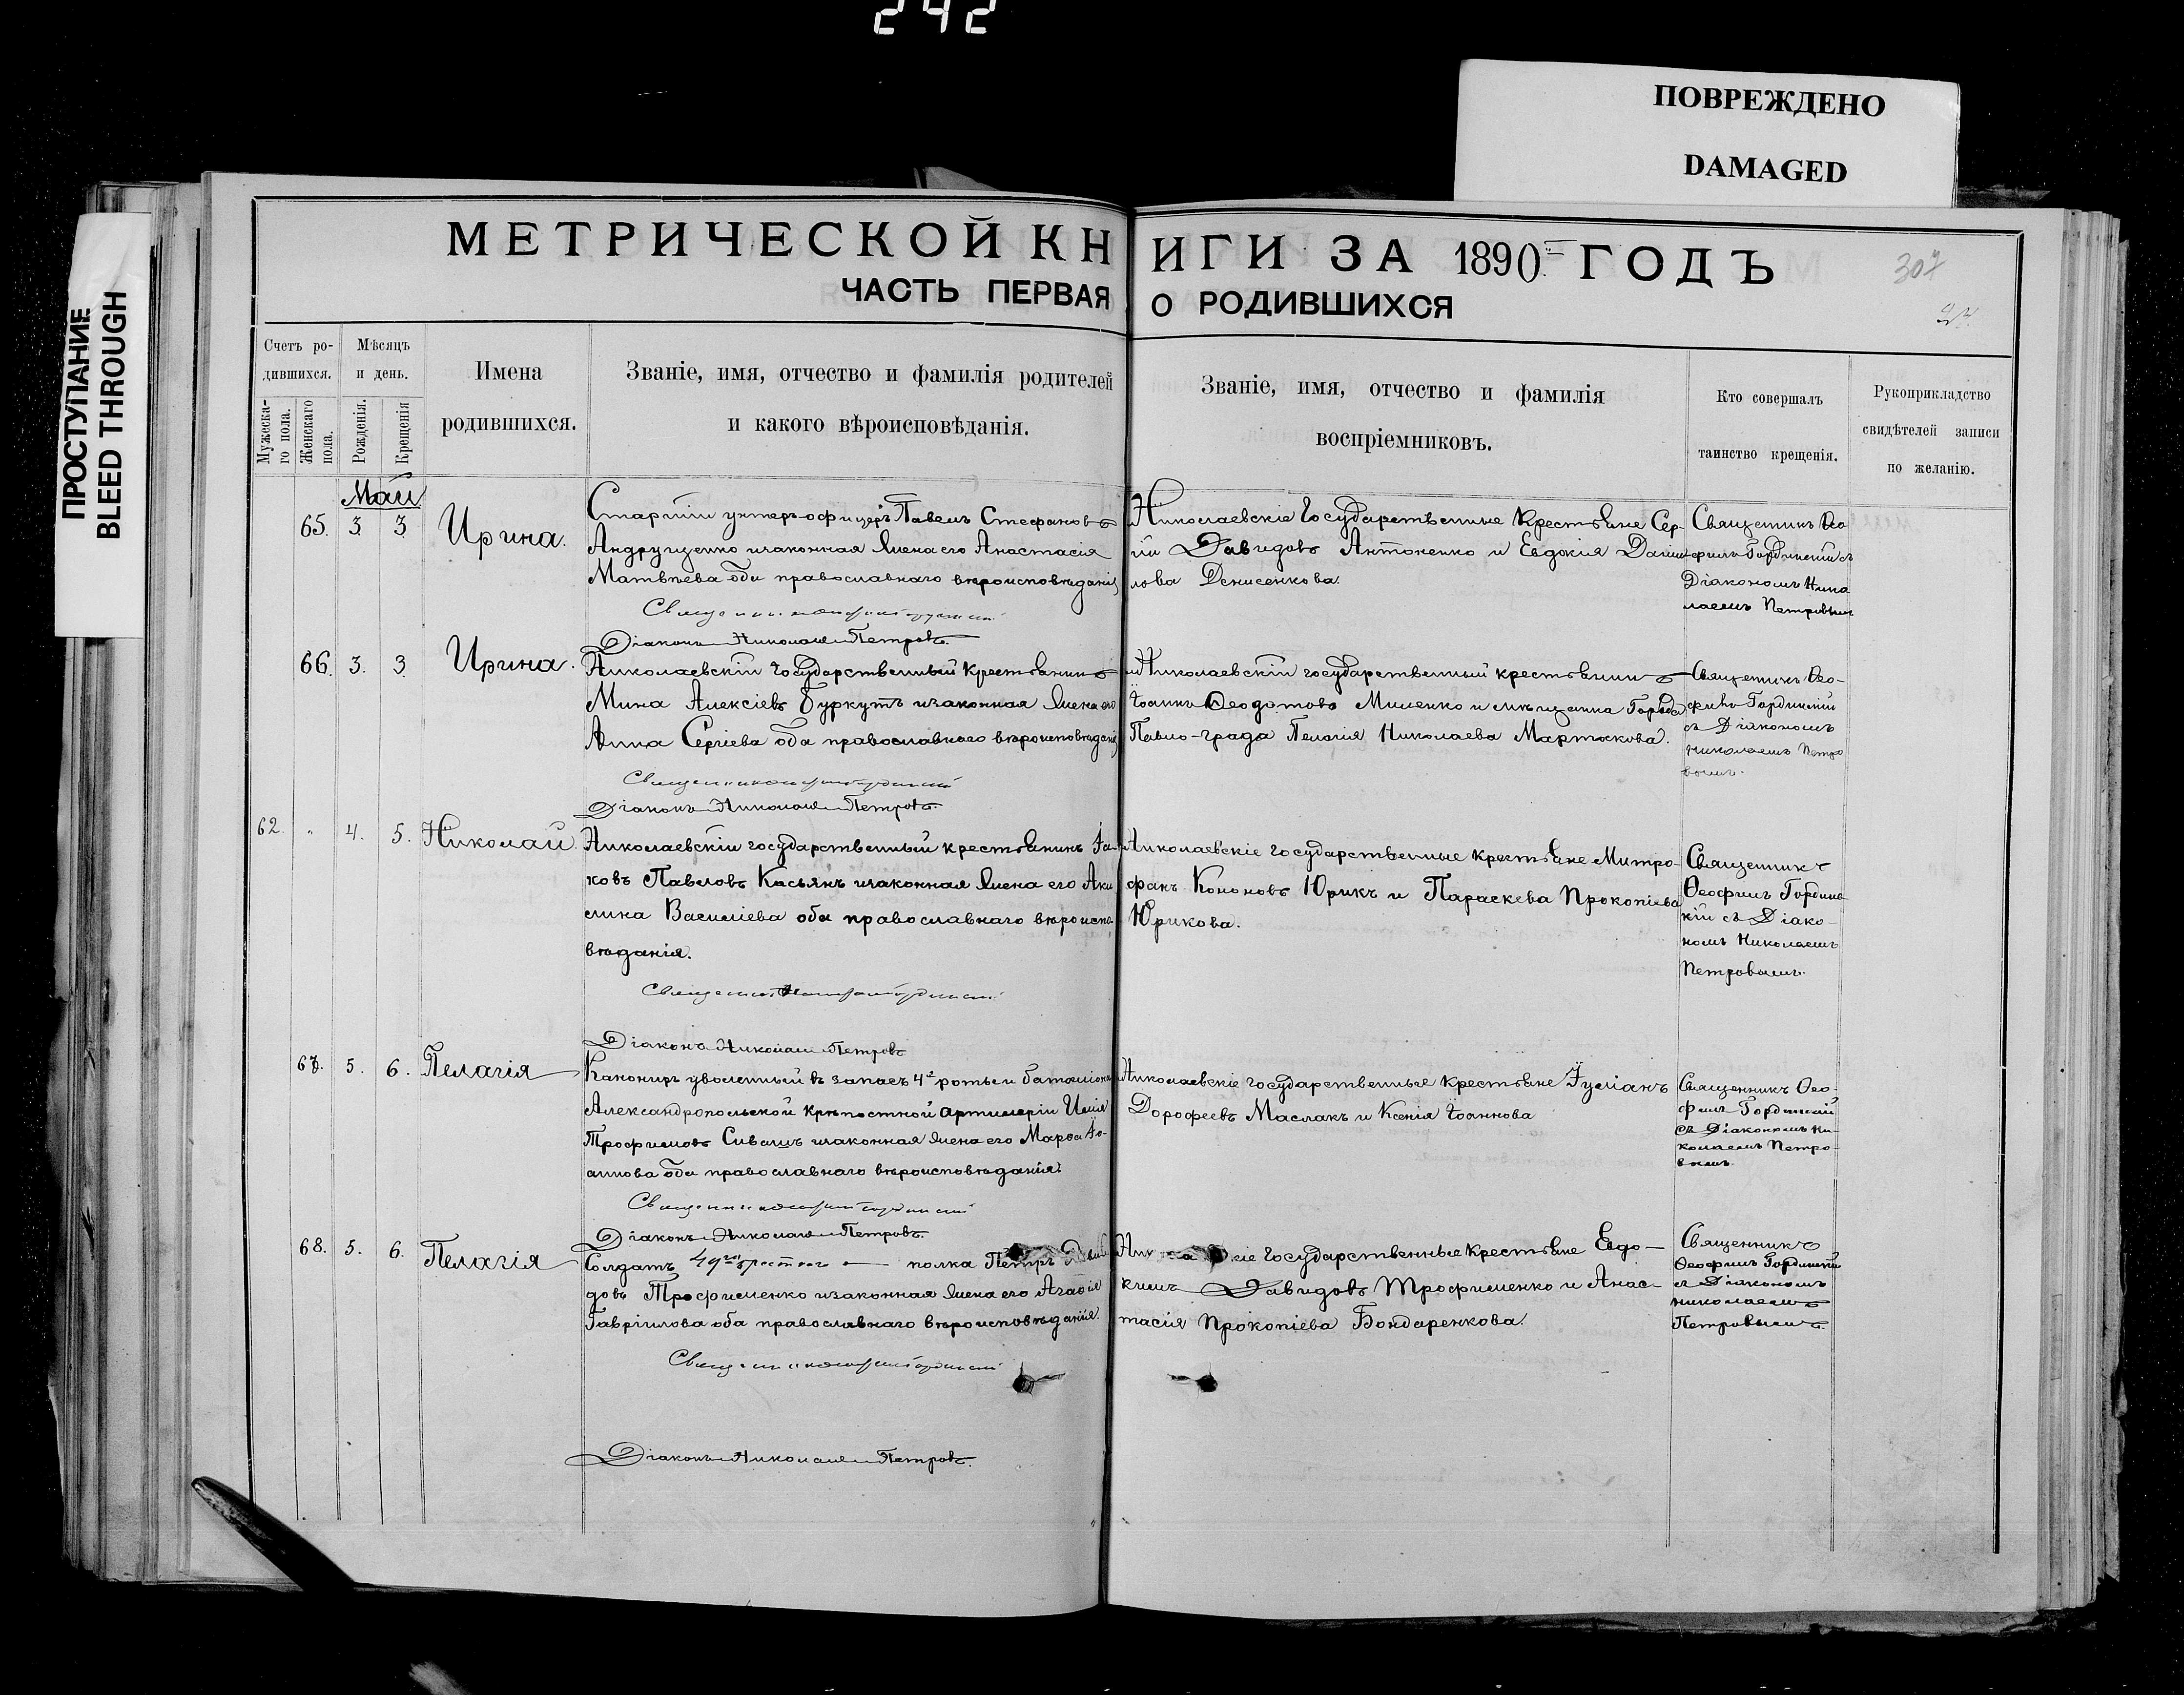 242
ПОВРЕЖДЕНО
DAMAGED
ПРОСТУПАНИЕ
BLEED THROUGH
МЕТРИЧЕСКОЙ КНИГИ ЗА 1890 ГОДЪ
307
ЧАСТЬ ПЕРВАЯ О РОДИВШИХСЯ
Счетъ ро-
дившихся.
Мужеска-
го пола.
Женскаго
пола.
Мѣсяцъ
и день.
Рожденія.
Крещенія
Имена
родившихся.
Званіе, имя, отчество и фамилія родителей
и какого вѣроисповѣданія.
Званіе, имя, отчество и фамилія
воспріемниковъ.
Кто совершалъ
таинство крещенія.
Рукоприкладство
свидѣтелей записи
по желанію.
Май
65. 3. 3. Ирина.
Старшій унтеръ-офицеръ Павелъ Стефановъ
Андрущенко изаконная жена его Анастасія
Матвѣева оба православнаго вѣроисповѣданія
Діаконъ Николай Петровъ.
Николаевскіе Государственные Крестьяне Сер-
гій Давидовъ Антоненко и Евдокія Даніи-
лова Денисенкова.
Священникъ Ѳео
филъ Гординскій съ
Діакономъ Нико
лаемъ Петровымъ
66. 3. 3. Ирина.
Николаевскій государственный крестьянинъ
Мина Алексіевъ Буркутъ изаконная жена его
Анна Сергіева оба православнаго вѣроисповѣданія
Діаконъ Николай Петровъ.
Николаевскій государственный крестьянинъ
Іоаннъ Ѳеодотовъ Миненко и мѣщанка Города
Павло-града Пелагія Николаева Мартокова.
Священникъ Ѳео-
филъ Гординскій
съ Діакономъ
Николаемъ Петро
вымъ.
62. " 4. 5. Николай.
Николаевскій государственный крестьянинъ Іа-
ковъ Павловъ Касьянъ изаконная жена его Аки
лина Василіева оба православнаго вѣроиспо-
вѣданія.
Діаконъ Николай Петровъ
Николаевскіе государственные крестьяне Митро-
фанъ Кононовъ Юрикъ и Параскева Прокопіева
Юрикова.
Священникъ
Ѳеофилъ Гординс
кій съ Діако-
номъ Николаемъ
Петровымъ.
67. 5. 6. Пелагія
Канониръ уволенный въ запасъ 4й роты баталіона
Александропольской крѣпостной артиллеріи Илія
Трофимовъ Сивашъ изаконная жена его Марѳа Іо-
аннова оба православнаго вѣроисповѣданія.
Діаконъ Николай Петровъ.
Николаевскіе государственные крестьяне Іуліанъ
Дорофеевъ Маслакъ и Ксенія Іоаннова
Священникъ Ѳео-
филъ Гординскій
съ Діакономъ Ни-
колаемъ Петро-
вымъ.
68. 5. 6. Пелагія
Солдатъ полка Петръ Дави
довъ Трофименко изаконная жена его Агафія
Гавріилова оба православнаго вѣроисповѣданія.
Діаконъ Николай Петровъ.
Государственные крестьяне Евдо-
кимъ Давидовъ Трофименко и Анас-
тасія Прокопіева Бондаренкова.
Священникъ
Ѳеофилъ Гординскій
съ Діакономъ
Николаемъ
Петровымъ.